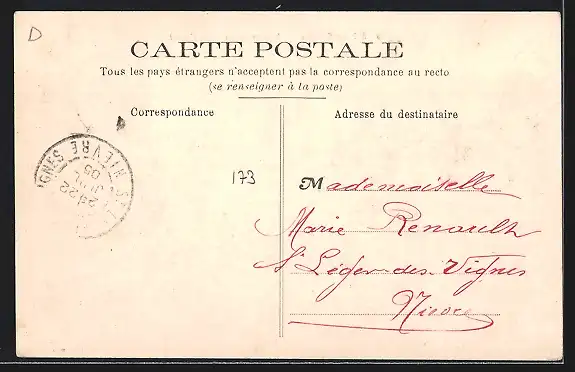 D
CARTE POSTALE
Tous les pays étrangers n'acceptent pas la correspondance au recto
(se renseigner à la poste)
Correspondance
Adresse du destinataire
173
Mademoiselle
Marie Renault
St Léger-des-Vignes
Nièvre
NIEVRE